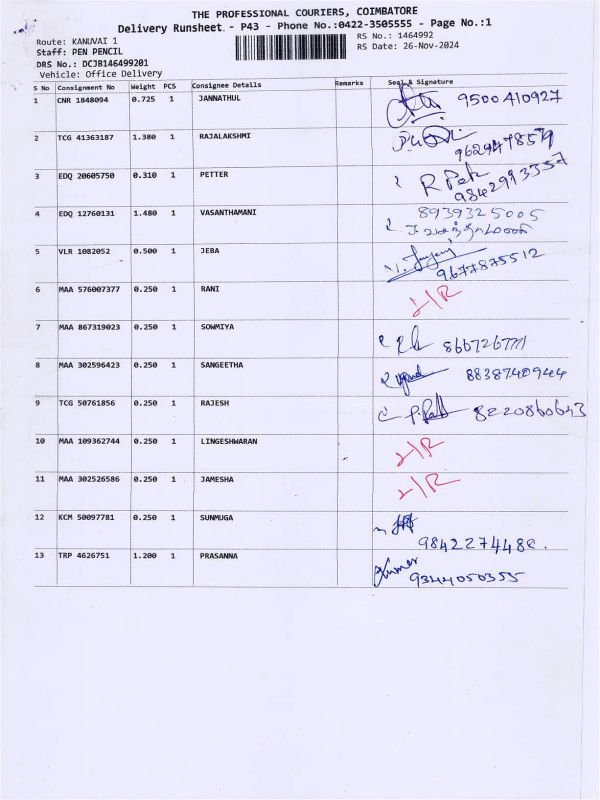 THE PROFESSIONAL COURIERS, COIMBATORE
Delivery Runsheet - P43 - Phone No.:0422-3505555 - Page No.:1
Route: KANUVAI 1
Staff: PEN PENCIL
DRS No.: DCJB146499201
Vehicle: Office Delivery
RS No.: 1464992
RS Date: 26-Nov-2024
S No Consignment No Weight PCS Consignee Details Remarks Seal & Signature
1 CNR 1848094 0.725 1 JANNATHUL 9500410927
2 TCG 41363187 1.380 1 RAJALAKSHMI
3 EDQ 20605750 0.310 1 PETTER R Pet
4 EDQ 12760131 1.480 1 VASANTHAMANI 8939325005
வசந்தாமணி
5 VLR 1082052 0.500 1 JEBA
9677875512
6 MAA 576007377 0.250 1 RANI
7 MAA 867319023 0.250 1 SOWMIYA
8 MAA 302596423 0.250 1 SANGEETHA 8838740944
9 TCG 50761856 0.250 1 RAJESH 8220860643
10 MAA 109362744 0.250 1 LINGESHWARAN
11 MAA 302526586 0.250 1 JAMESHA
12 KCM 50097781 0.250 1 SUNMUGA
13 TRP 4626751 1.200 1 PRASANNA Kumar
9344050355